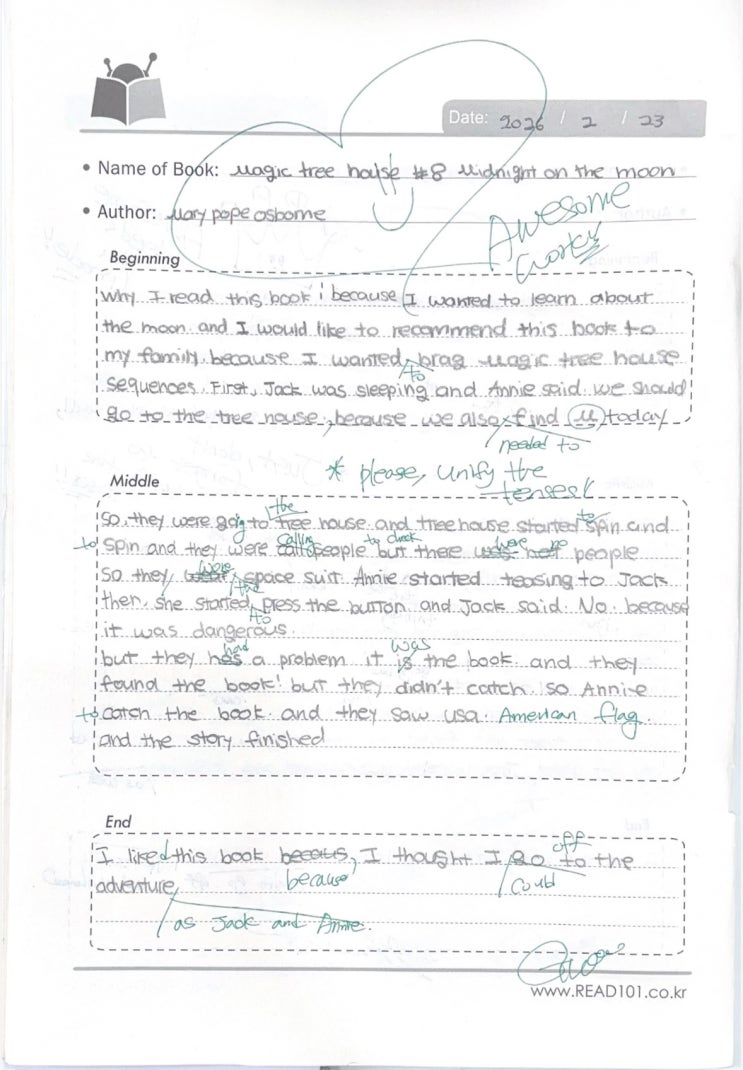 Date: 2026 / 2 / 23
• Name of Book: Magic tree house #8 Midnight on the moon
• Author: Mary pope osborne
Awesome
work
Beginning
Why I read this book! because I wanted to learn about
the moon. and I would like to recommend this book to
my family. because I wanted to brag Magic tree house
sequences. First, Jack was sleeping and Annie said. we should
go to the tree house, because we also needed to find M today
* please, unify the
tenses!
Middle
So, they were going to the tree house. and tree house started to spin and
to spin and they were calling people to check but there were no people
So they wore the space suit. Annie started teasing to Jack
then. she started to press the button and Jack said. No. because
it was dangerous.
but they had a problem it was the book. and they
found the book! but they didn't catch. so Annie
to catch the book. and they saw usa. American flag.
and the story finished
End
I liked this book because, I thought I could go off to the
adventure
as Jack and Annie.
www.READ101.co.kr